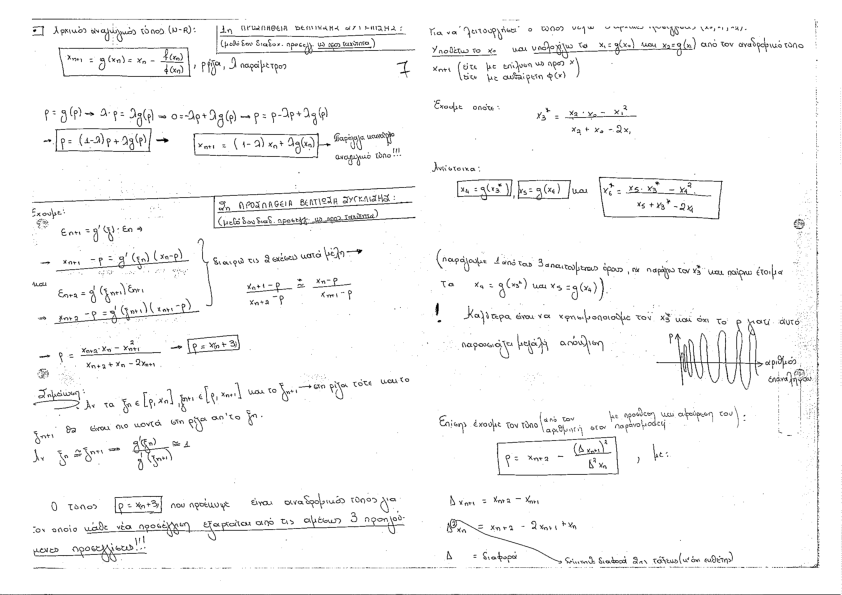 Αρχικός αναγωγικός τύπος (N-R):
1η ΠΡΟΣΠΑΘΕΙΑ ΒΕΛΤΙΩΣΗΣ ΣΥΓΚΛΙΣΗΣ:
(μεθόδου διαδοχ. προσεγγ. ως προς ταχύτητα)
xn+1 = g(xn) = xn - f(xn)/φ(xn) , ρ ρίζα, λ παράμετρος
7
ρ = g(ρ) → λ·ρ = λg(ρ) → 0 = -λρ + λg(ρ) → ρ = ρ - λρ + λg(ρ)
→ ρ = (1-λ)ρ + λg(ρ) → xn+1 = (1-λ) xn + λg(xn) → Παράγω καινούργιο
αναγωγικό τύπο!!!
2η ΠΡΟΣΠΑΘΕΙΑ ΒΕΛΤΙΩΣΗΣ ΣΥΓΚΛΙΣΗΣ:
(μεθόδου διαδ. προσεγγ. ως προς ταχύτητα)
Έχουμε:
εn+1 = g'(ξn)·εn →
→ xn+1 - ρ = g'(ξn)(xn-ρ)
και
εn+2 = g'(ξn+1) εn+1
→ xn+2 - ρ = g'(ξn+1)(xn+1-ρ)
διαιρώ τις 2 σχέσεις κατά μέλη →
(xn+1-ρ)/(xn+2-ρ) ≅ (xn-ρ)/(xn+1-ρ)
→ ρ = (xn+2·xn - x²n+1)/(xn+2 + xn - 2xn+1) → ρ = x(n+3)
Σημείωση:
Αν τα ξn ∈ [ρ, xn], ξn+1 ∈ [ρ, xn+1] και το ξn+1 → στη ρίζα τότε και το
ξn+1 θα είναι πιο κοντά στη ρίζα απ'το ξn.
Αν ξn ≅ ξn+1 ⇒ g'(ξn)/g'(ξn+1) ≅ 1
Ο τύπος ρ = xn+3 που προέκυψε είναι αναδρομικός τύπος για
τον οποίο κάθε νέα προσέγγιση εξαρτάται από τις αμέσως 3 προηγού-
μενες προσεγγίσεις!!!
Για να "λειτουργήσει" ο τύπος θέλω 3 αρχικές προσεγγίσεις (x0, x1, x2).
Υποθέτω το x0 και υπολογίζω τα x1 = g(x0) και x2 = g(x1) από τον αναδρομικό τύπο
xn+1 (είτε με επίλυση ως προς x)
(είτε με αυθαίρετη φ(x))
Έχουμε οπότε:
x3* = (x2·x0 - x1²)/(x2 + x0 - 2x1)
Αντίστοιχα:
x4 = g(x3*), x5 = g(x4) και x6* = (x5·x3* - x4²)/(x5 + x3* - 2x4)
(παράγαμε 1 από τους 3 απαιτούμενους όρους, πχ παράγω τον x3* και παίρνω έτοιμα
τα x4 = g(x3*) και x5 = g(x4)).
! Καλύτερα είναι να χρησιμοποιούμε τον x3* και όχι το ρ γιατί αυτό
παρουσιάζει μεγάλη απόκλιση
ρ
αριθμός
επαναλήψεων
Επίσης έχουμε τον τύπο (από τον αριθμητή στον με πρόσθεση και αφαίρεση του παρονομαστή):
ρ = xn+2 - (Δxn+1)²/Δ²xn , με:
Δxn+1 = xn+2 - xn+1
Δ²xn = xn+2 - 2xn+1 + xn
Δ = διαφορά
δείκτης διαφορά 2ης τάξεως (κ'όχι εκθέτης)